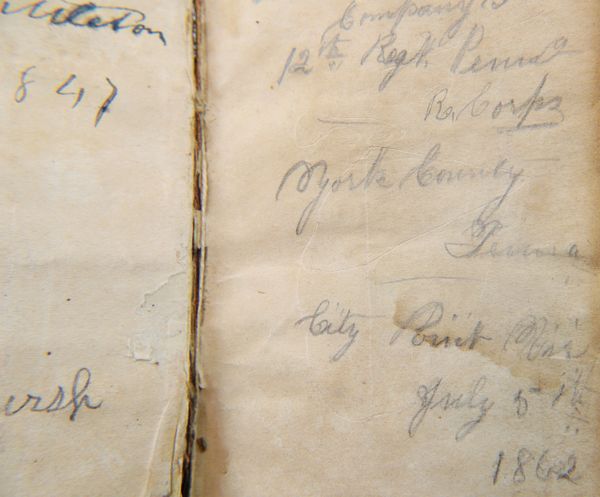 847
Company G
12th Regt. Penna
Re, Corps
York County
Penna
City Point Va
July 5th
1862